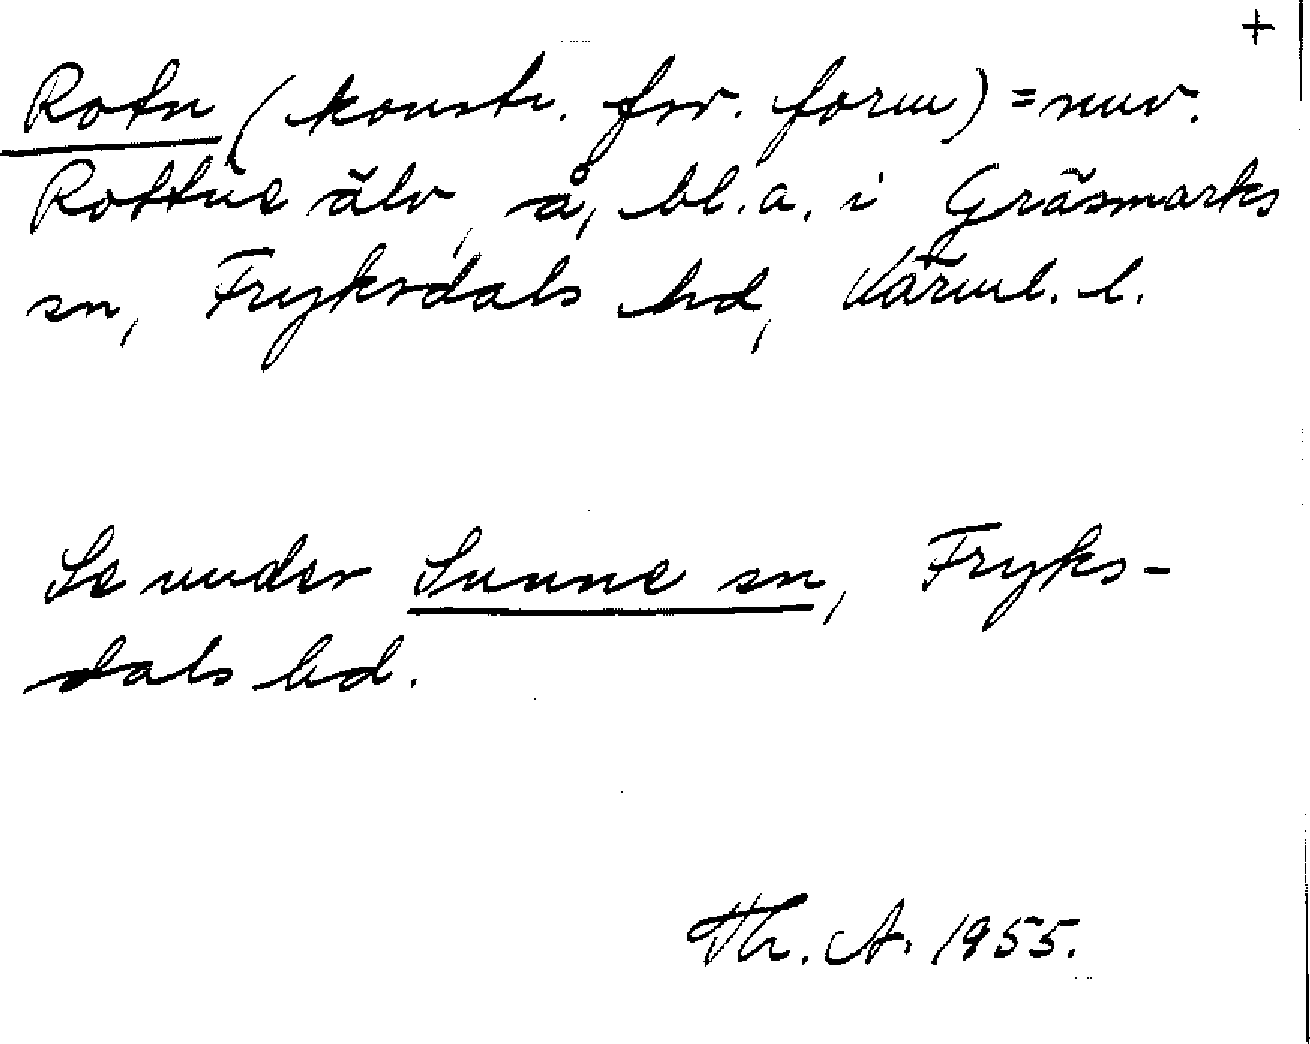 +
Rotn (konstr. fsv. form) = nuv.
Rottne älv, å, bl.a. i Gräsmarks
sn, Fryksdals hd, Värml. l.
Se under Sunne sn, Fryks-
dals hd.
Th. A. 1955.